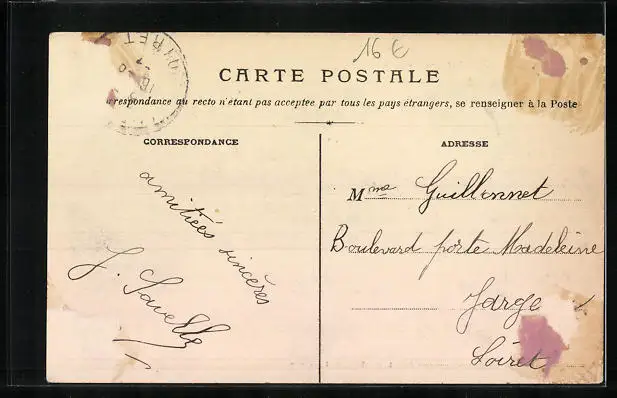 16 €
CARTE POSTALE
respondance au recto n'étant pas acceptée par tous les pays étrangers, se renseigner à la Poste
CORRESPONDANCE
ADRESSE
amitiées sincères
Mme Guillonnet
Boulevard porte Madeleine
Jargeau
Loiret